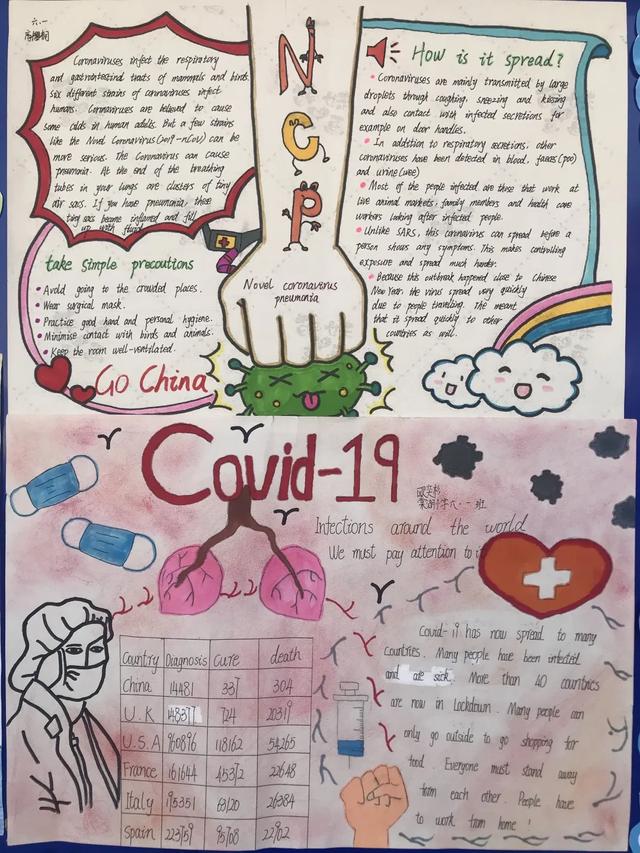 六.一
Coronaviruses infect the respiratory
and gastrointestinal tracts of mammals and birds.
six different strains of coronaviruses infect
humans. Coronaviruses are believed to cause
some colds in human adults. But a few strains
like the Novel Coronavirus (2019-nCoV) can be
more serious. The Coronavirus can cause
pneumonia. At the end of the breathing
tubes in your lungs are clusters of tiny
air sacs. If you have pneumonia, these
tiny sacs become inflamed and fill
up with fluid.
take simple precautions
Avoid going to the crowded places.
Wear surgical mask.
Practice good hand and personal hygiene.
Minimise contact with birds and animals.
Keep the room well-ventilated.
GO China
N
C
P
Novel coronavirus
pneumonia
How is it spread?
Coronaviruses are mainly transmitted by large
droplets through coughing, sneezing and kissing
and also contact with infected secretions for
example on door handles.
In addition to respiratory secretions, other
coronaviruses have been detected in blood, faeces (poo)
and urine (wee)
Most of the people infected are those that work at
live animal markets, family members and health care
workers looking after infected people.
Unlike SARS, this coronavirus can spread before a
person shows any symptoms. This makes controlling
exposure and spread much harder.
Because this outbreak happened close to Chinese
New Year, the virus spread very quickly
due to people travelling. The meant
that it spread quickly to other
countries as well.
Covid-19
Infections around the world
We must pay attention to it
Country Diagnosis Cure death
China 84481 337 304
U.K 148377 724 20319
U.S.A 960896 118162 54265
France 161644 45372 22648
Italy 195351 63120 26384
Spain 223759 95708 22902
Covid-19 has now spread to many
countries. Many people have been infected
and are sick. More than 40 countries
are now in Lockdown. Many people can
only go outside to go shopping for
food. Everyone must stand away
from each other. People have
to work from home!